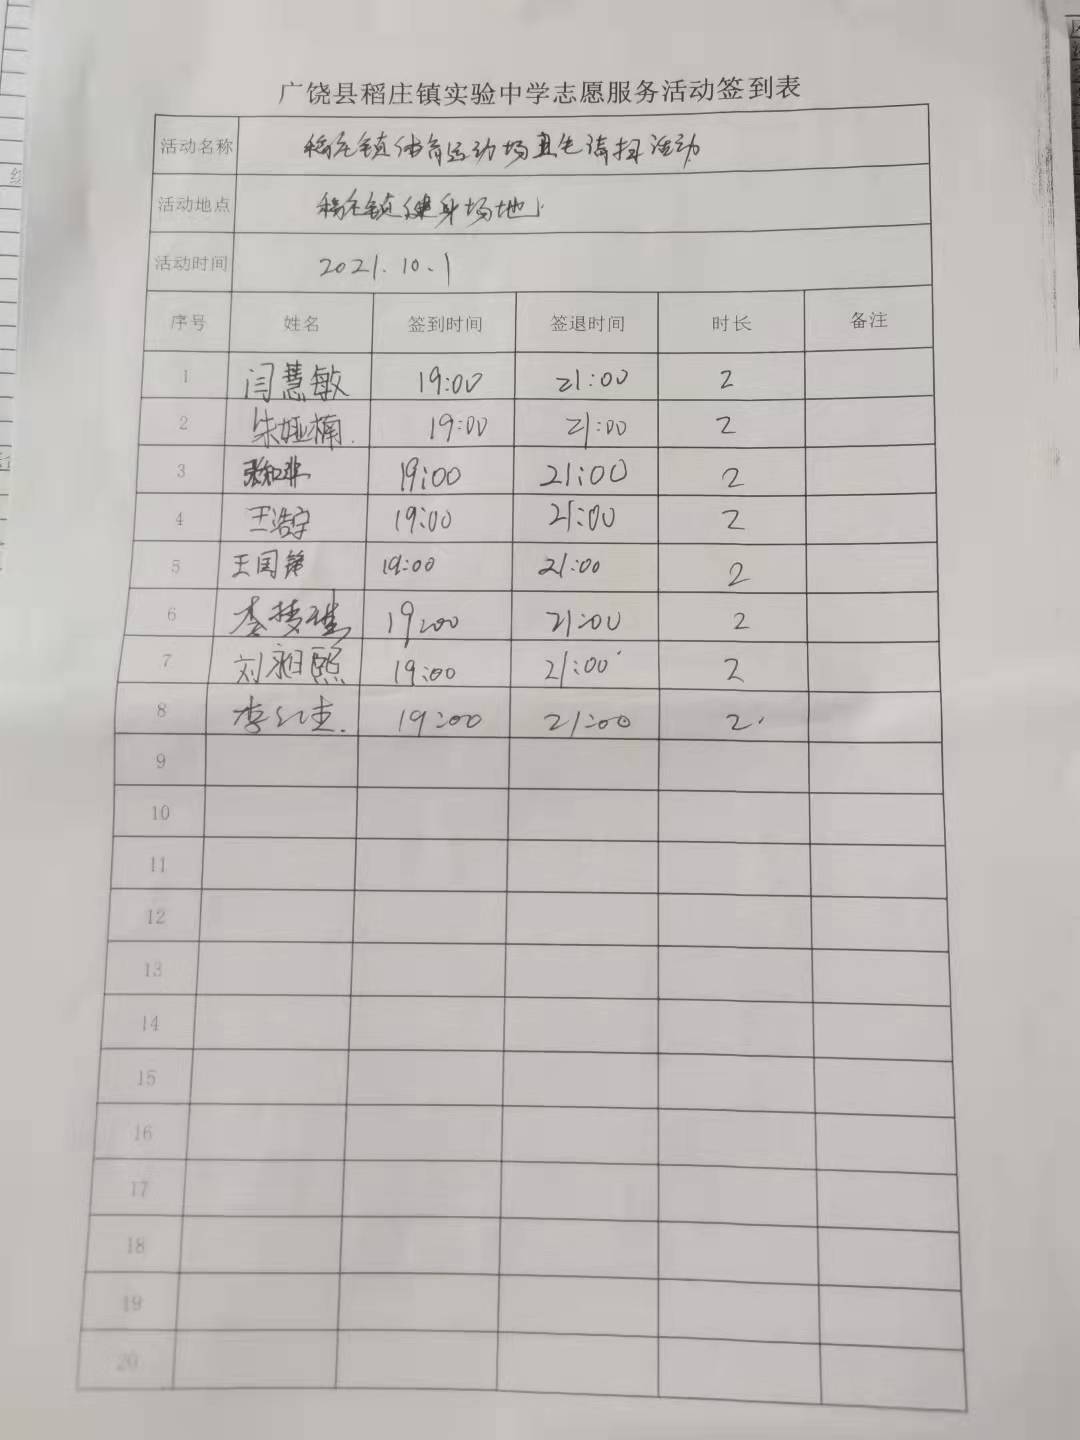 广饶县稻庄镇实验中学志愿服务活动签到表
活动名称 稻庄镇体育运动场卫生清扫活动
活动地点 稻庄镇健身场地
活动时间 2021.10.1
序号 姓名 签到时间 签退时间 时长 备注
1 闫慧敏 19:00 21:00 2
2 朱娅楠 19:00 21:00 2
3 19:00 21:00 2
4 王浩宇 19:00 21:00 2
5 王国 19:00 21:00 2
6 李梦 19:00 21:00 2
7 刘 熙 19:00 21:00 2
8 李红圭 19:00 21:00 2
9
10
11
12
13
14
15
16
17
18
19
20